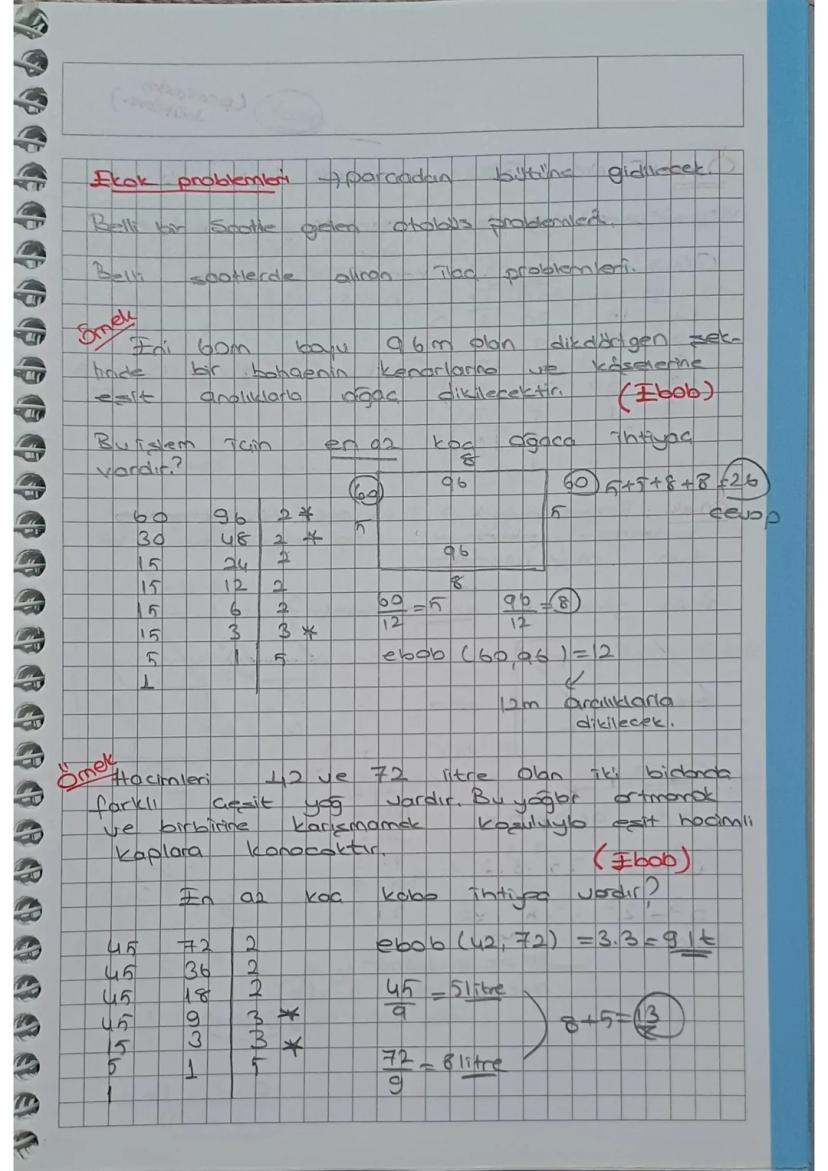 Ekok problemleri → parçadan bütüne gidilecek.
Belli bir Saatte gelen otobüs problemleri.
Belli saatlerde alınan ilaç problemleri.
Örnek
Eni 60m boyu 96m olan dikdörtgen şek-
linde bir bahçenin kenarlarına ve köşelerine
eşit aralıklarla ağaç dikilecektir. (Ebob)
Bu işlem için en az kaç ağaca ihtiyaç
vardır.?
8
60 96 60 5+5+8+8=26
5 5 cevap
96
8
60 96 2*
30 48 2 *
15 24 2
15 12 2
15 6 2
15 3 3 *
5 1 5
1
60/12 = 5 96/12 = 8
ebob (60,96) = 12
12m aralıklarla
dikilecek.
Örnek
Hacimleri 42 ve 72 litre olan iki bidonda
farklı çeşit yağ vardır. Bu yağlar artmamak
ve birbirine karışmamak koşuluyla eşit hacimli
kaplara konacaktır. (Ebob)
En az kaç kaba ihtiyaç vardır?
45 72 2
45 36 2
45 18 2
45 9 3 *
15 3 3 *
5 1 5
1
ebob (42, 72) = 3.3 = 9 lt
45/9 = 5 litre
8+5=13
72/9 = 8 litre